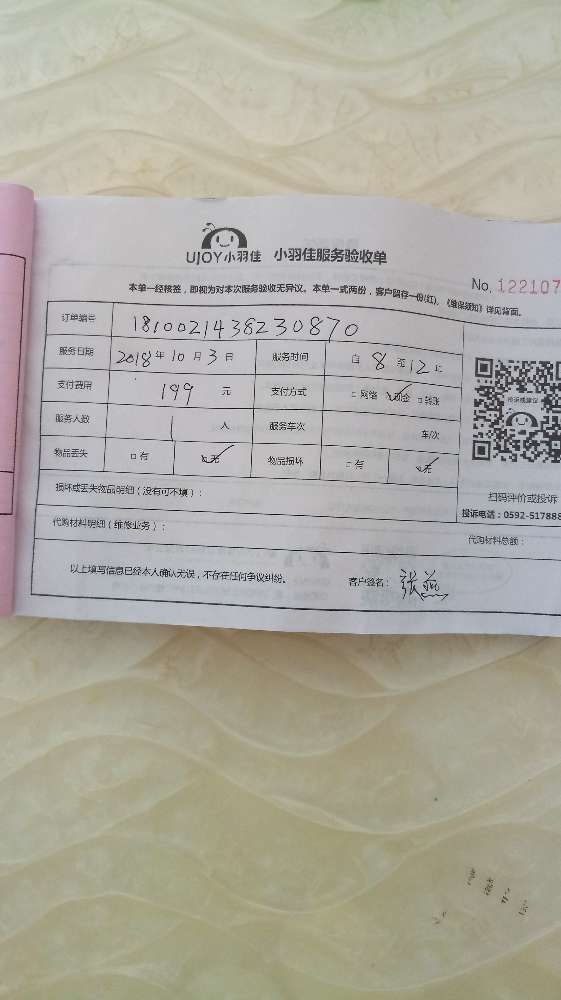 UJOY小羽佳 小羽佳服务验收单
No. 122107
本单一经核签，即视为对本次服务验收无异议。本单一式两份，客户留存一份(红)，《维保须知》详见背面。
订单编号 1810021438230870
服务日期 2018年10月3日 服务时间 自8至12止
支付费用 199 元 支付方式 □网络 ☑现金 □转账
服务人数 1 人 服务车次 车/次
物品丢失 □有 ☑无 物品损坏 □有 ☑无
损坏或丢失物品明细（没有可不填）：
扫码评价或投诉
投诉电话：0592-517888
代购材料明细（维修业务）：
代购材料总额：
以上填写信息已经本人确认无误，不存在任何争议纠纷。 客户签名：张燕